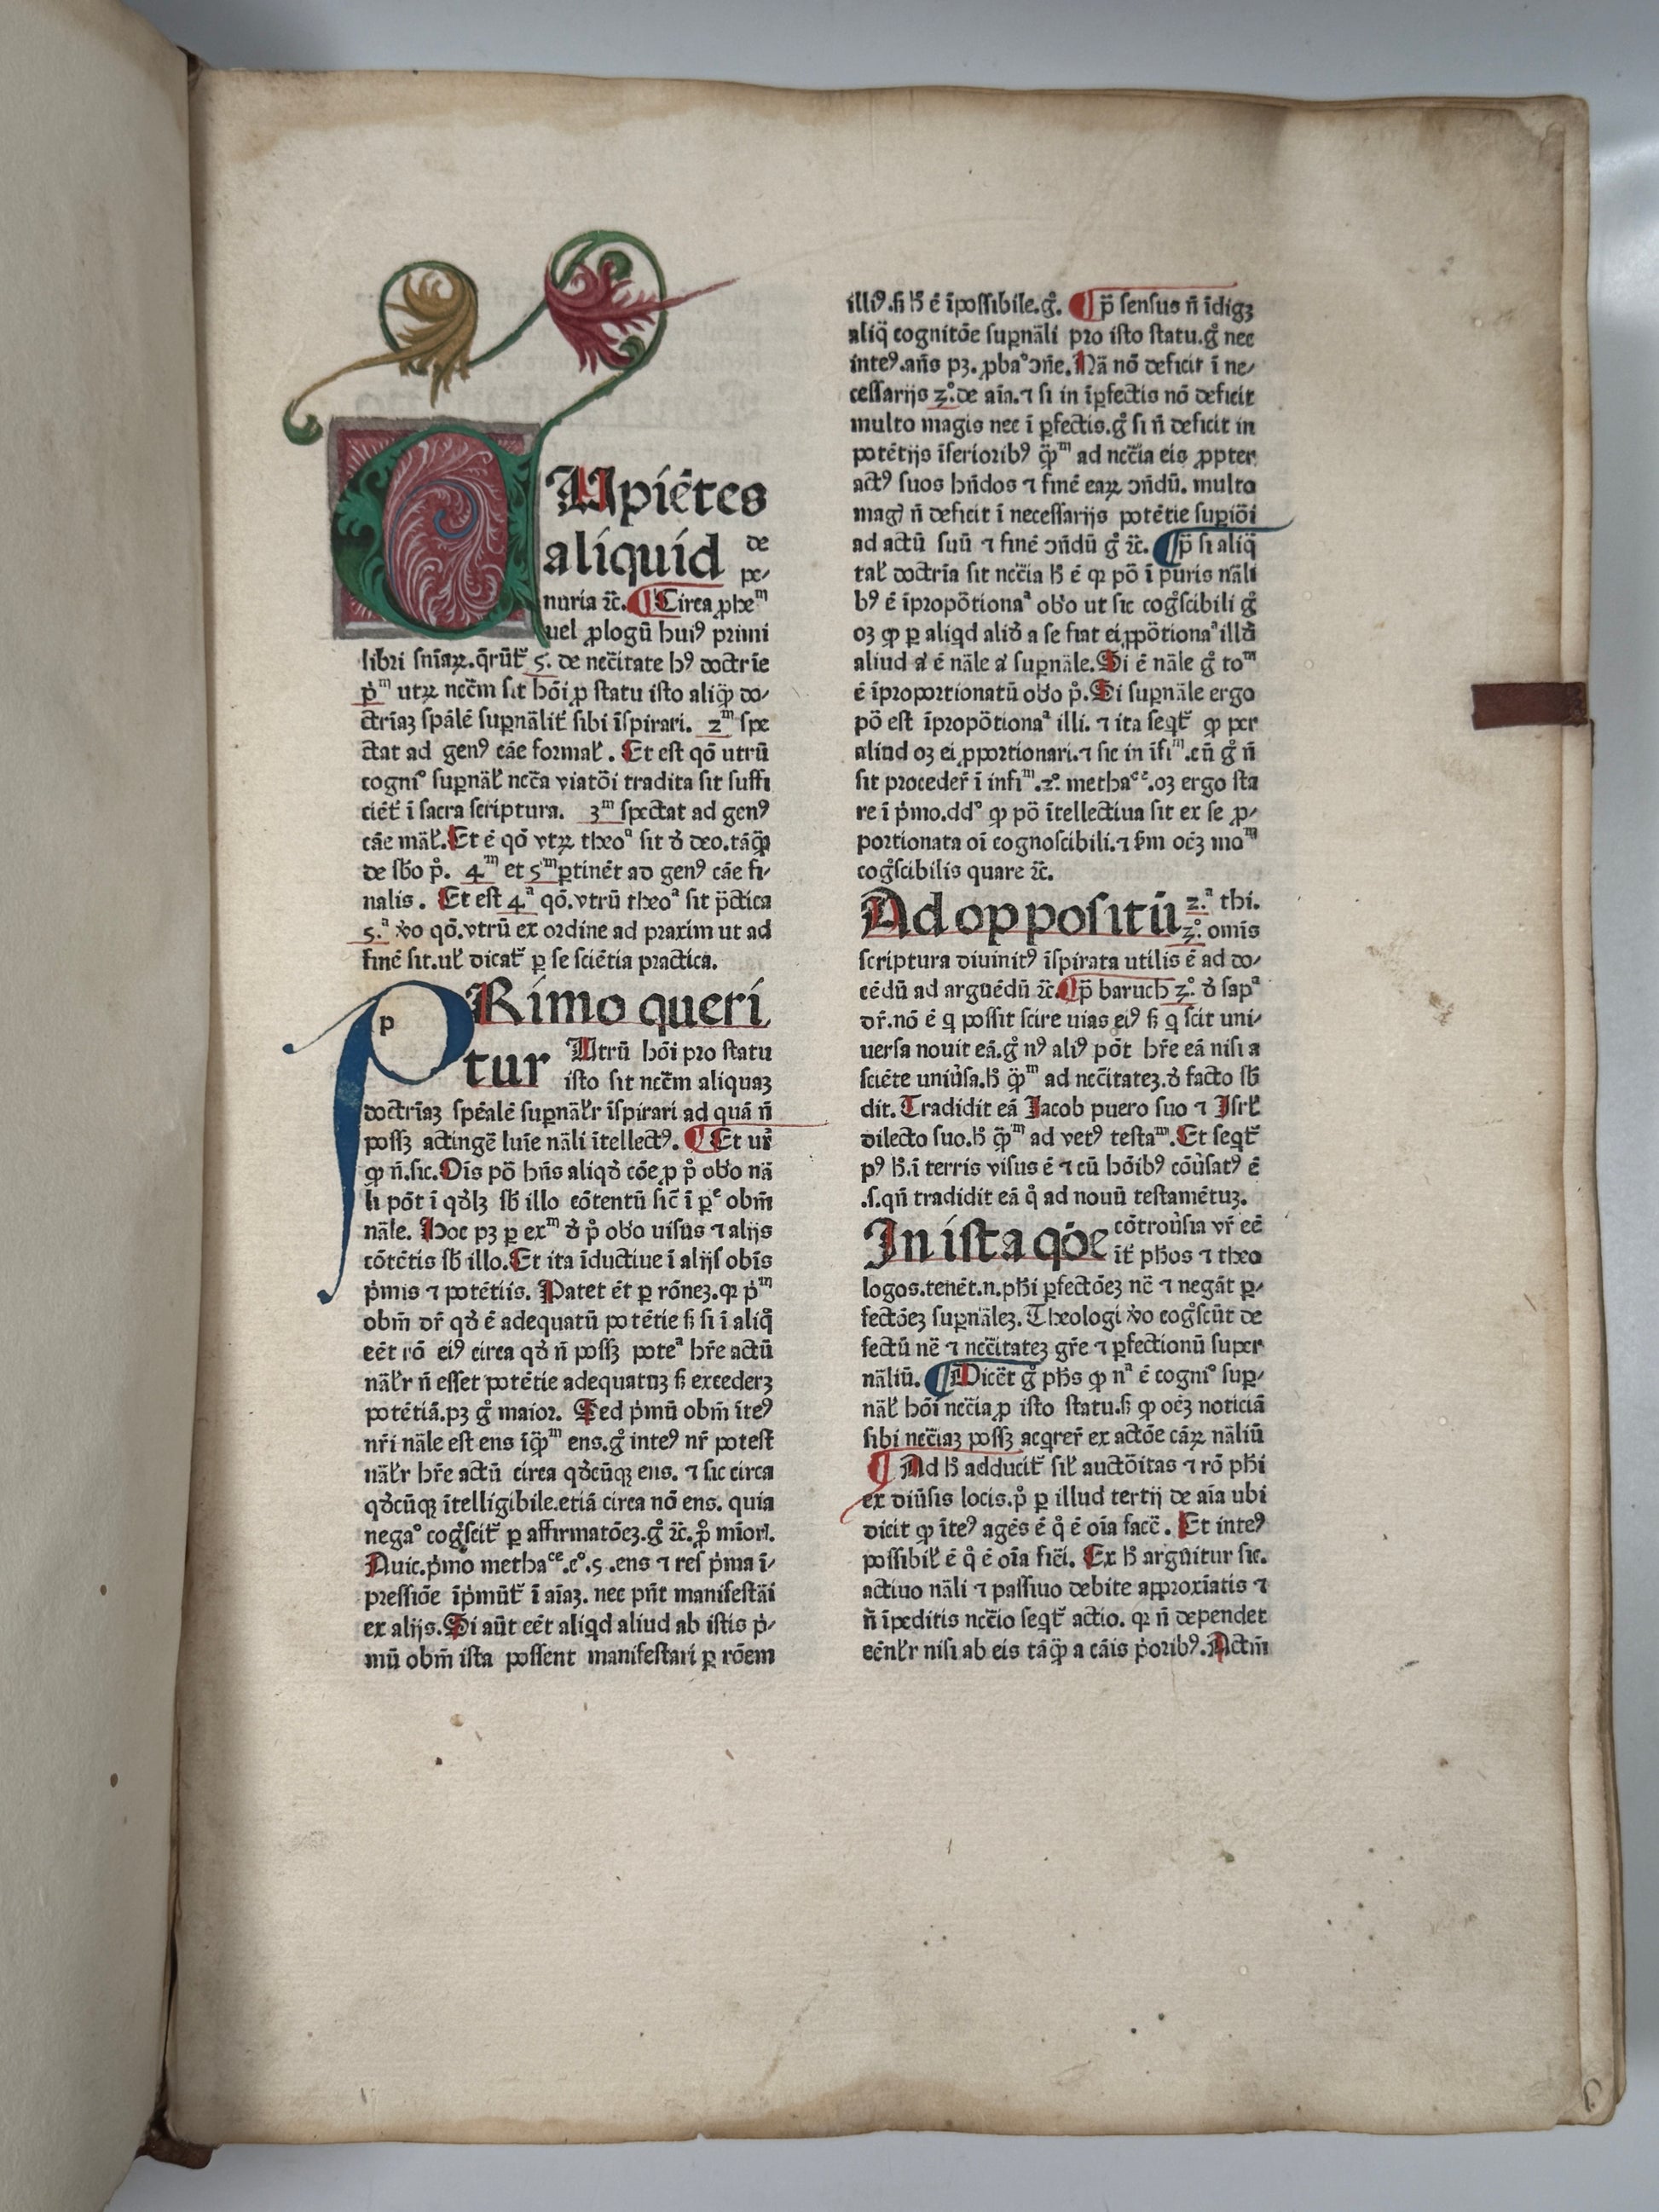 CUpiētes
aliquid de
pe⸗
nuria ⁊c̄. ¶Circa ꝓheᵐ
uel ꝓlogū huiꝰ primi
libri sn̄iaꝝ.q̄rūt̄ 5. de necc̄itate hꝰ doctrīe
p̄ᵐ utꝝ necc̄m sit hōi ꝓ statu isto aliꝙ̄ do⸗
ctrīaꝫ sp̄alē suꝑnālit̄ sibi īspirari. 2ᵐ spe
ctat ad genꝰ cāe formal̄. Et est qō utrū
cogniᵒ suꝑnāl̄ necc̄a viatōi tradita sit suffi
ciēt̄ ī sacra scriptura. 3ᵐ spectat ad genꝰ
cāe māl̄. Et ē qō vtꝝ theoᵃ sit ð deo.tāꝙ̄
de sb̄o p̄. 4ᵐ et 5ᵐ ꝑtinēt ad genꝰ cāe fi⸗
nalis. Et est 4ᵃ qō.vtrū theoᵃ sit p̄ctica
5.ᵃ v̄o qō.vtrū ex ordine ad praxim ut ad
finē sit.ul̄ dicat̄ ꝑ se sciētia practica.
PRimo queri
p
tur Utrū hōi pro statu
isto sit necc̄m aliquaꝫ
doctrīaꝫ spēalē suꝑnāl̄r īspirari ad quā n̄
possꝫ actingē luīe nāli ītellectꝰ. ¶Et ur̄
ꝙ n̄.sic. Oīs pō hn̄s aliqð cōe ꝓ p̊ ob̄o nā
li pōt ī qðlꝫ sb̄ illo cōtentū sic̄ ī ꝑᵉ obm̄
nāle. Hoc pꝫ ꝑ exᵐ ð p̊ ob̄o uisus ⁊ alijs
cōtētis sb̄ illo. Et ita īductiue ī alijs obīs
p̄mis ⁊ potētiis. Patet ēt ꝑ rōneꝫ.qꝛ p̄ᵐ
obm̄ dr̄ qð ē adequatū potētie ß si ī aliq̊
eēt rō eiꝰ circa qð n̄ possꝫ poteᵃ hr̄e actū
nāl̄r n̄ esset potētie adequatuꝫ ß excederꝫ
potētiā.pꝫ g̊ maior. Sed p̄mū obm̄ īteꝰ
nr̄i nāle est ens īꝙ̄ᵐ ens.g̊ inteꝰ nr̄ potest
nāl̄r hr̄e actū circa qðcūqꝫ ens. ⁊ sic circa
qðcūqꝫ ītelligibile.etiā circa nō ens. quia
negaᵒ cog̊scit̄ ꝑ affirmatōeꝫ.g̊ ⁊c̄. ꝓ̄ mīorī.
Auic.p̄mo methaᶜᵉ.cᵒ.5.ens ⁊ res p̄ma ī⸗
pressiōe īp̄mūt̄ ī aīaꝫ. nec pn̄t manifestāi
ex alijs. Si aūt eēt aliqd aliud ab istis p̄⸗
mū obm̄ ista possent manifestari ꝑ rōem
illiꝰ.ß h̄ ē īpossibile.g̊. ¶p̄ sensus n̄ īdigꝫ
aliq̄ cognitōe suꝑnāli pro isto statu.g̊ nec
inteꝰ.añs pꝫ. ꝓbaᵒ ↄn̄e. Nā nō deficit ī ne⸗
cessarijs 3ᵒ.de aīa.⁊ si in īꝑfectis nō deficit
multo magis nec ī ꝑfectis.g̊ si n̄ deficit in
potētijs īferioribꝰ ꝙ̄ᵐ ad necc̄ia eis ꝓpter
actꝰ suos hn̄dos ⁊ finē eaꝝ ↄn̄dū. multo
magꝭ n̄ deficit ī necessarijs potētie suꝑiōi
ad actū suū ⁊ finē ↄn̄dū g̊ ⁊c̄. ¶p̄ si aliq̄
tal̄ doctrīa sit necc̄ia h̄ ē qꝛ pō ī puris nāli
bꝰ ē īpropōtionaᵃ ob̄o ut sic cog̊scibili g̊
oꝫ ꝙ ꝑ aliqd alið a se fiat ei ꝓpōtionaᵃ illð
aliud aʼ ē nāle aʼ suꝑnāle. Si ē nāle g̊ toᵐ
ē īproportionatū ob̄o p̊. Si suꝑnāle ergo
pō est īpropōtionaᵃ illi. ⁊ ita seqt̄ ꝙ per
aliud oꝫ ei ꝓportionari.⁊ sic in īfiᵐ.cū g̊ n̄
sit proceder̄ ī infiᵐ.2ᵒ. methaᶜᵉ.oꝫ ergo sta
re ī p̄mo.ddᵒ ꝙ pō ītellectiua sit ex se ꝓ⸗
portionata oī cognoscibili.⁊ ẜm oēꝫ moᵐ
cog̊scibilis quare ⁊c̄.
Ad oppositū 2.ᵃ thi.
3ᵒ. omīs
scriptura diuinitꝰ īspirata utilis ē ad do⸗
cēdū ad arguēdū ⁊c̄. ¶p̄ baruch 3ᵒ. ð sapᵃ
dr̄.nō ē q possit scire uias eiꝰ ß q scit uni⸗
uersa nouit eā.g̊ nꝰ aliꝰ pōt hr̄e eā nisi a
sciēte uniu̇sa.h̄ ꝙ̄ᵐ ad necc̄itateꝫ.ð facto sb̄
dit. Tradidit eā Jacob puero suo ⁊ Isrl̄
dilecto suo.h̄ ꝙ̄ᵐ ad vetꝰ testaᵐ. Et seqt̄
pꝰ h̄.ī terris visus ē ⁊ cū hōibꝰ cōu̇satꝰ ē
.s.qn̄ tradidit eā q̊ ad nouū testamētuꝫ.
In ista qōe cōtrou̇sia vr̄ eē
īt̄ ph̄os ⁊ theo
logos.tenēt.n.ph̄i ꝑfectōeꝫ nē ⁊ negāt ꝑ⸗
fectōeꝫ suꝑnāleꝫ. Theologi v̄o cog̊scūt de
fectū nē ⁊ necc̄itateꝫ gr̄e ⁊ ꝑfectionū super
nāliū. ¶Dicēt g̊ ph̄s ꝙ nᵃ ē cogniᵒ suꝑ⸗
nāl̄ hōi necc̄ia ꝓ isto statu.ß ꝙ oēꝫ noticiā
sibi necc̄iaꝫ possꝫ acqrer̄ ex actōe cāꝝ nāliū
¶Ad h̄ adducit̄ sil̄ auctōitas ⁊ rō ph̄i
ex diu̇sis locis.p̊ ꝑ illud tertij de aīa ubi
dicit ꝙ īteꝰ agēs ē q̊ ē oīa facē. Et inteꝰ
possibil̄ ē q̊ ē oīa fiēi. Ex h̄ arguitur sic.
actiuo nāli ⁊ passiuo debite approxīatis ⁊
n̄ īpeditis necc̄io seqt̄ actio. qꝛ n̄ dependet
eēnl̄r nisi ab eis tāꝙ̄ a cāis p̄oribꝰ. Actm̄